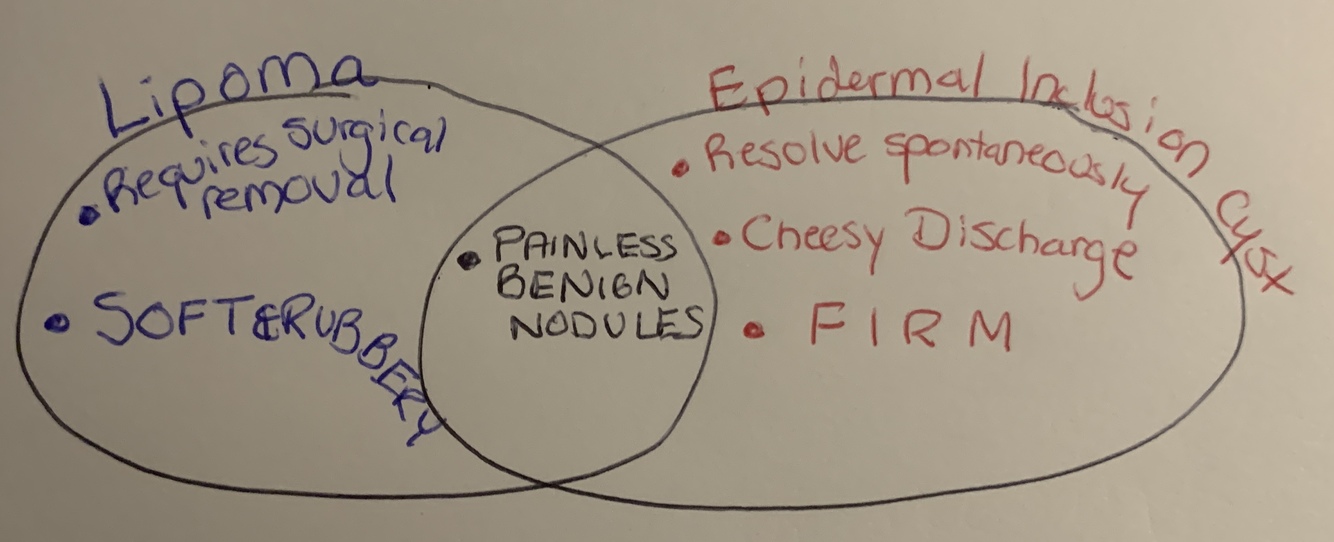 Lipoma
• Requires surgical
removal
• SOFT & RUBBERY
• PAINLESS
BENIGN
NODULES
Epidermal Inclusion Cyst
• Resolve spontaneously
• Cheesy Discharge
• FIRM